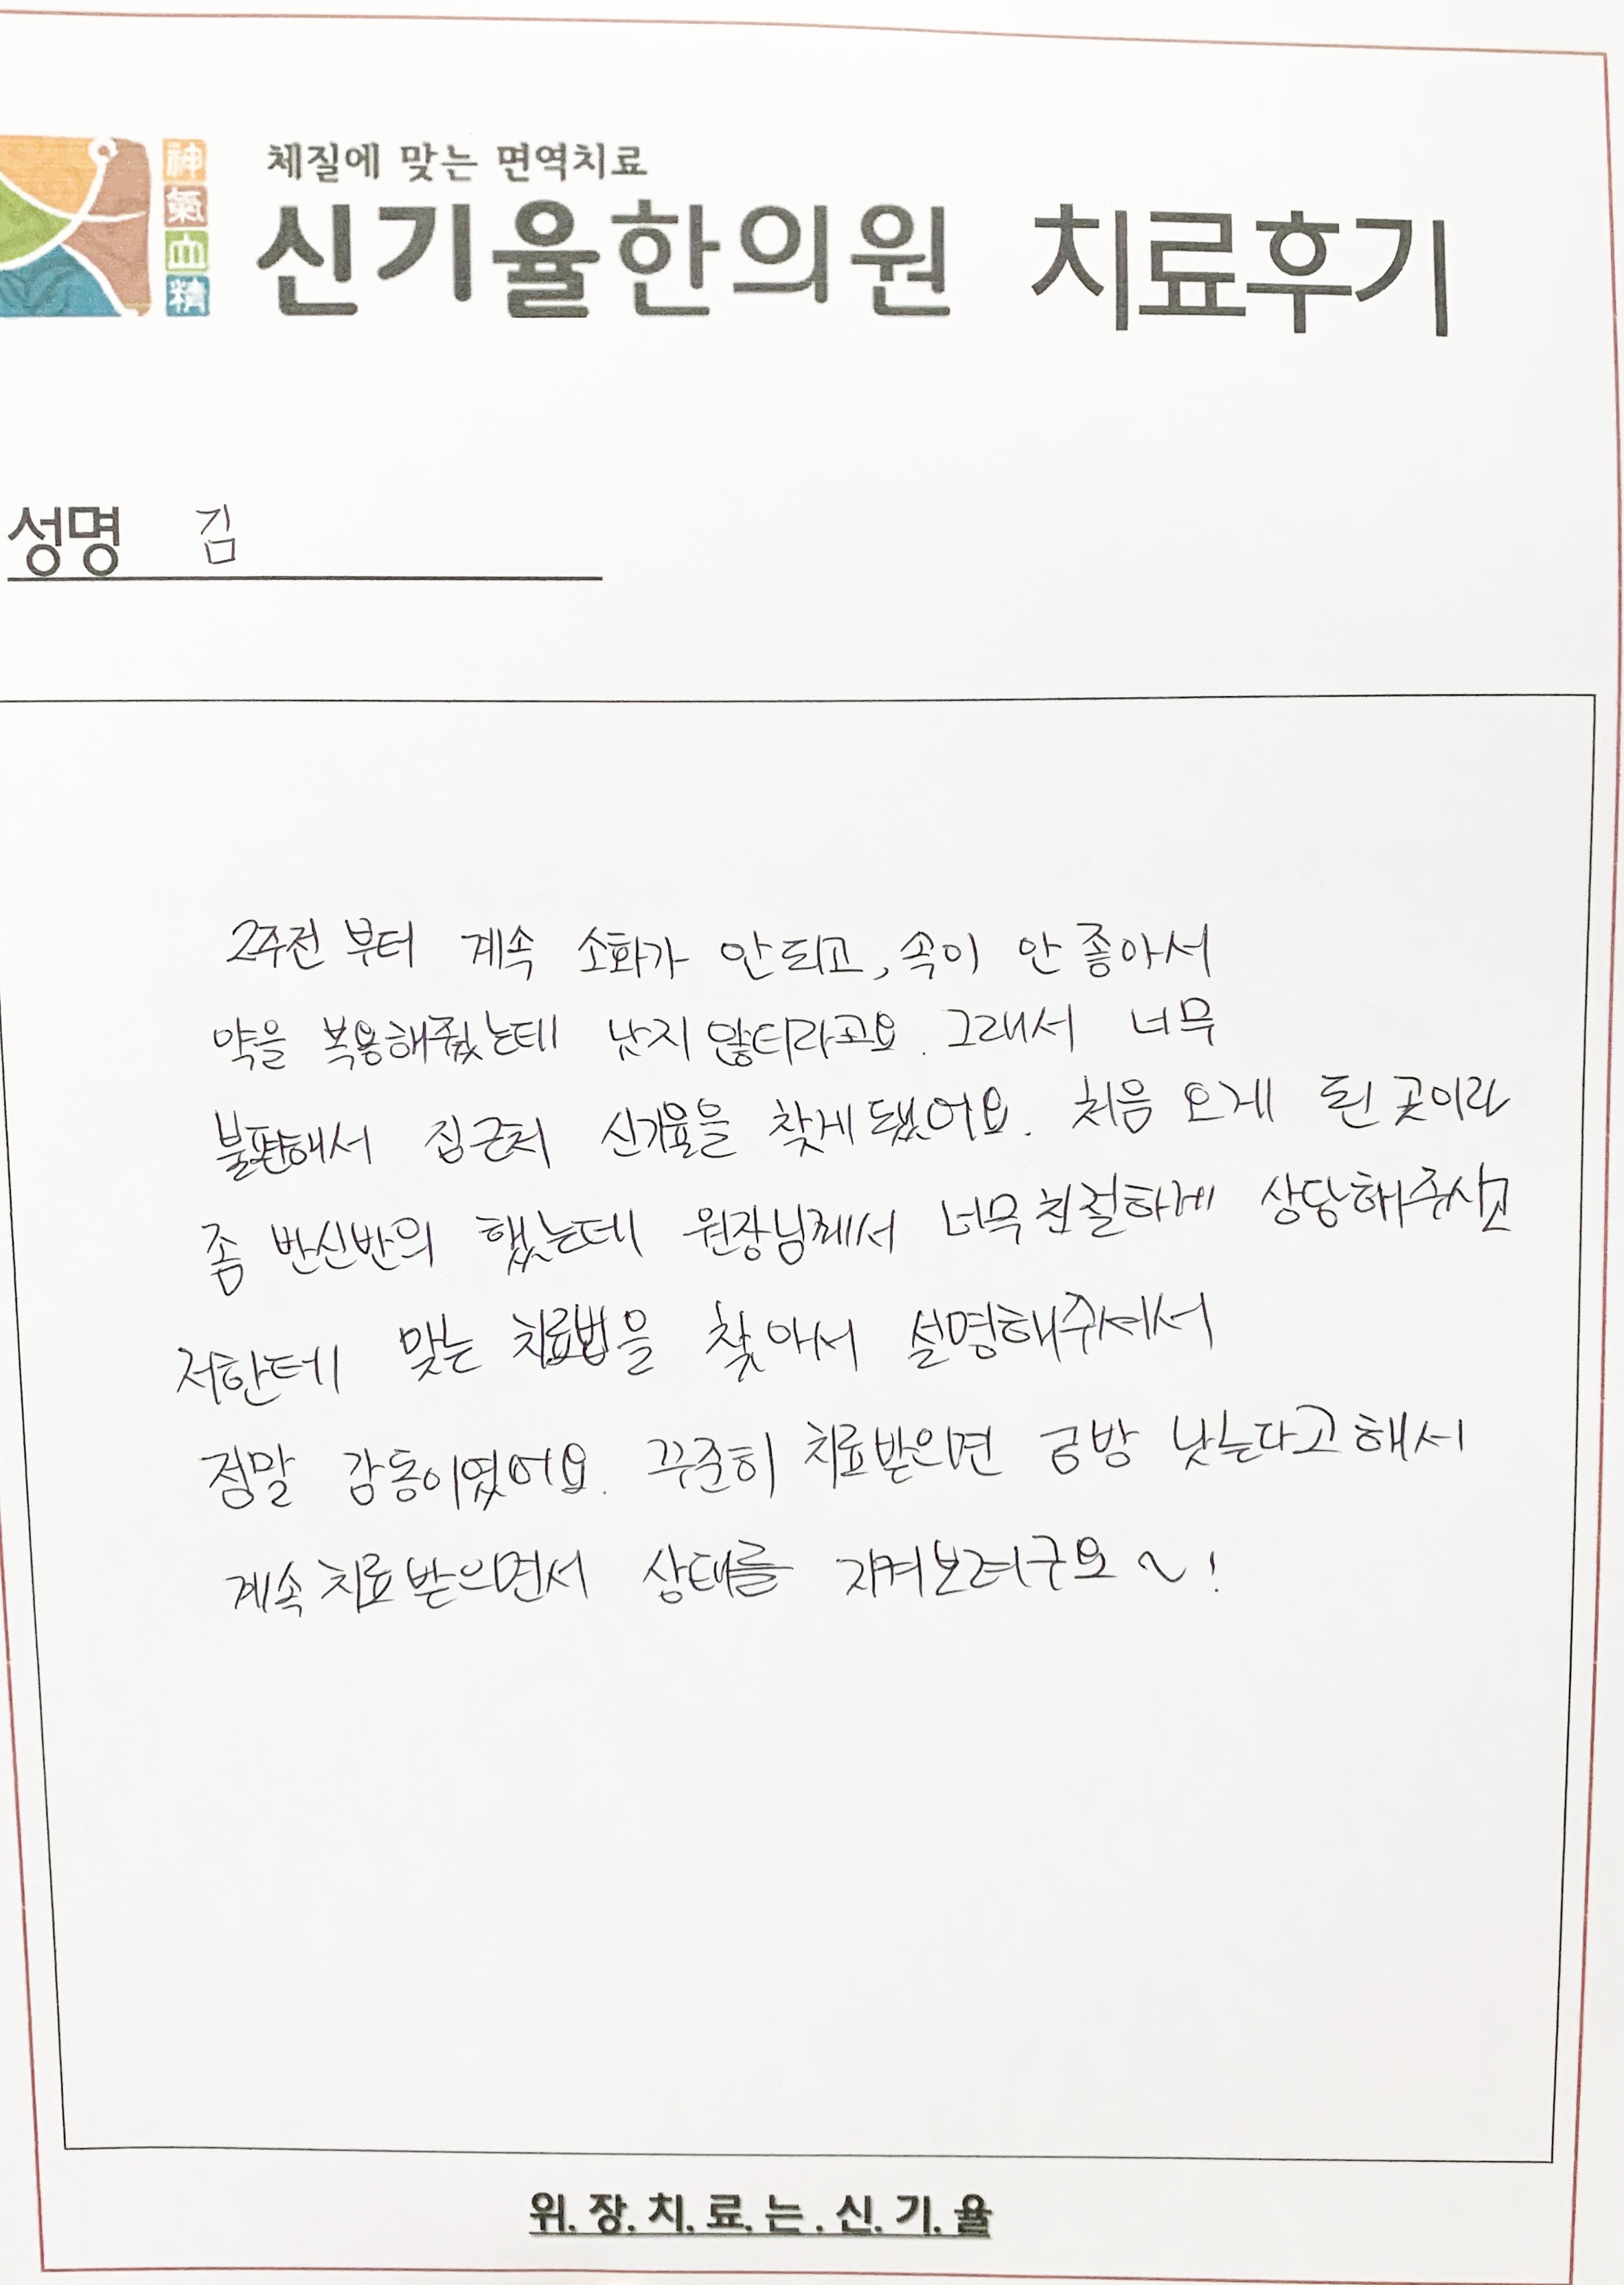 체질에 맞는 면역치료
神
氣
血
精
신기율한의원 치료후기
성명 김
2주전 부터 계속 소화가 안되고, 속이 안 좋아서
약을 복용해줬는데 낫지 않더라고요. 그래서 너무
불편해서 집근처 신기율을 찾게됐어요. 처음 오게 된 곳이라
좀 반신반의 했는데 원장님께서 너무 친절하게 상담해주시고
저한테 맞는 치료법을 찾아서 설명해주셔서
정말 감동이였어요. 꾸준히 치료받으면 금방 낫는다고 해서
계속 치료 받으면서 상태를 지켜보려구요~!
위.장.치.료.는.신.기.율